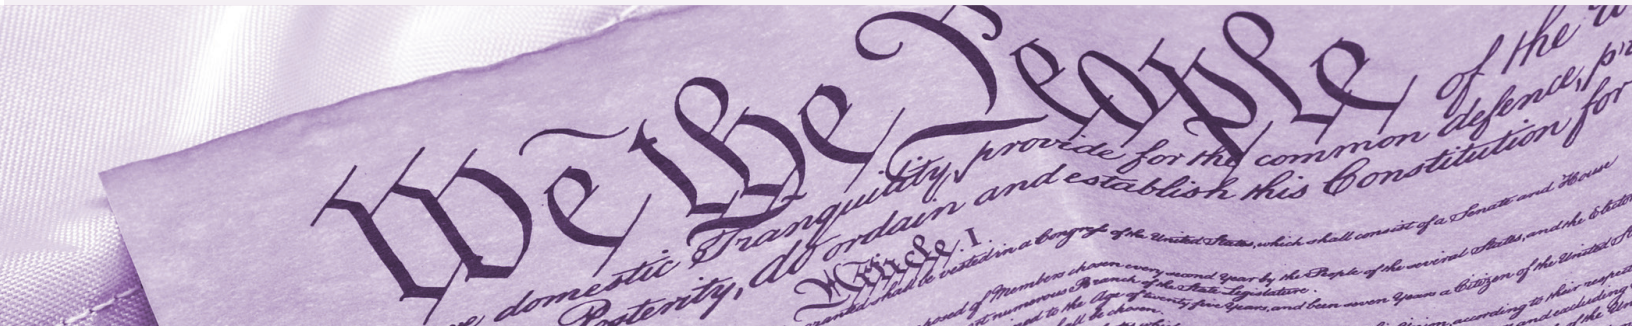 We the People of the
domestic Tranquility, provide for the common defence,
Posterity, do ordain and establish this Constitution for
Article. I.
vested in a Congress of the United States, which shall consist of a Senate and House
of Members chosen every second Year by the People of the several States, and the
numerous Branch of the State Legislature.
to the Age of twenty five Years, and been seven Years a Citizen of the United
be chosen.
according to their respect
and excluding